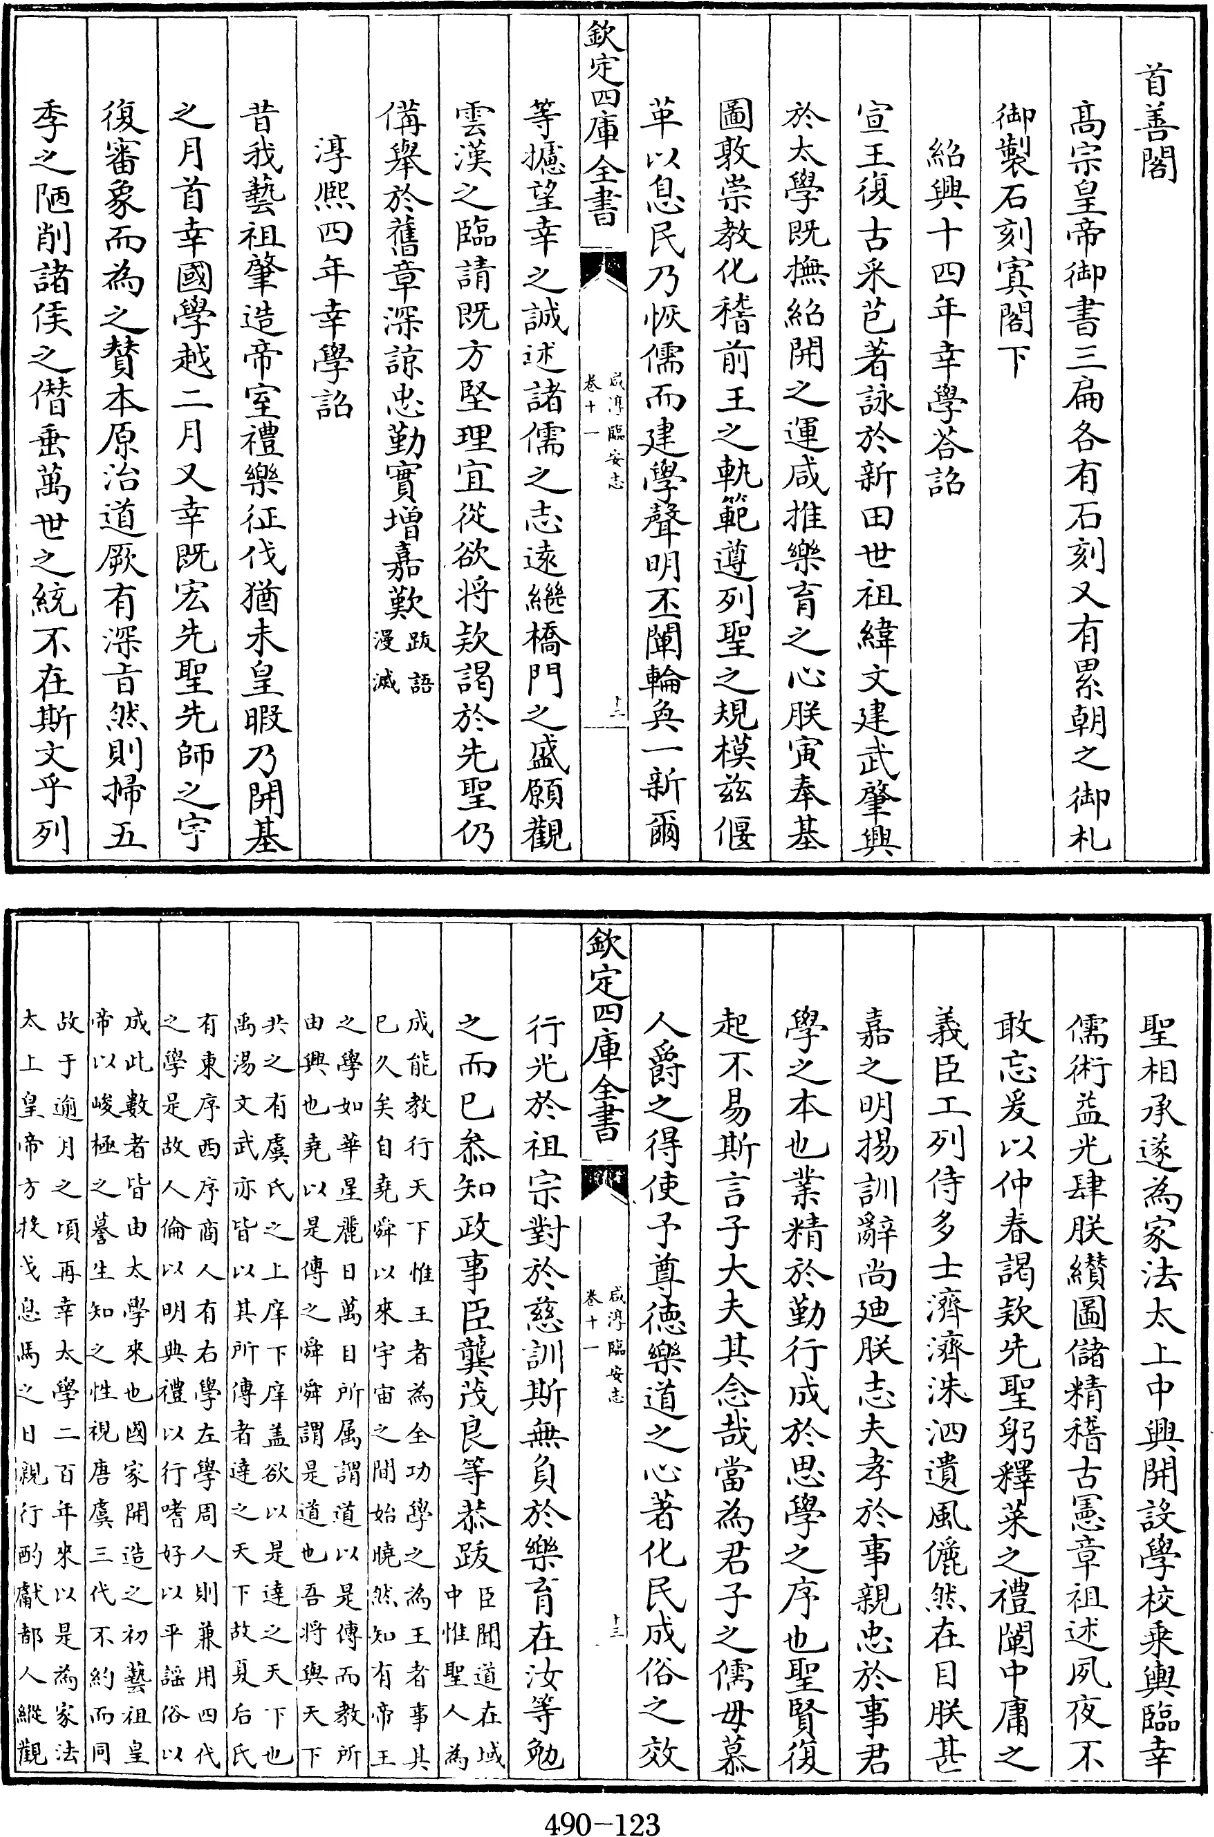 首善閣
髙宗皇帝御書三扁各有石刻又有累朝之御札
御製石刻寘閣下
紹興十四年幸學答詔
宣王復古采芑著詠於新田世祖緯文建武肇興
於太學既撫紹開之運咸推樂育之心朕寅奉基
圖敦崇教化稽前王之軌範遵列聖之規模兹偃
革以息民乃恢儒而建學聲明丕闡輪奐一新爾
欽定四庫全書
咸淳臨安志
卷十一
十二
等攄望幸之誠述諸儒之志逺繼橋門之盛願觀
雲漢之臨請既方堅理宜從欲將款謁於先聖仍
備舉於舊章深諒忠勤實增嘉歎跋語
漫滅
淳熙四年幸學詔
昔我藝祖肇造帝室禮樂征伐猶未皇暇乃開基
之月首幸國學越二月又幸既宏先聖先師之宇
復審象而為之賛本原治道厥有深旨然則掃五
季之陋削諸侯之僭垂萬世之統不在斯文乎列
聖相承遂為家法太上中興開設學校乗輿臨幸
儒術益光肆朕纘圖儲精稽古憲章祖述夙夜不
敢忘爰以仲春謁款先聖躬釋菜之禮闡中庸之
義臣工列侍多士濟濟洙泗遺風儼然在目朕甚
嘉之明揚訓辭尚廸朕志夫孝於事親忠於事君
學之本也業精於勤行成於思學之序也聖賢復
起不易斯言子大夫其念哉當為君子之儒毋慕
人爵之得使予尊徳樂道之心著化民成俗之效
欽定四庫全書
咸淳臨安志
卷十一
十三
行光於祖宗對於慈訓斯無負於樂育在汝等勉
之而已叅知政事臣龔茂良等恭跋臣聞道在域
中惟聖人為
成能教行天下惟王者為全功學之為王者事其
已久矣自堯舜以來宇宙之間始曉然知有帝王
之學如華星麗日萬目所属謂道以是傳而教所
由興也堯以是傳之舜舜謂是道也吾將與天下
共之有虞氏之上庠下庠盖欲以是達之天下也
禹湯文武亦皆以其所傳者達之天下故夏后氏
有東序西序商人有右學左學周人則兼用四代
之學是故人倫以明典禮以行嗜好以平謡俗以
成此數者皆由太學來也國家開造之初藝祖皇
帝以峻極之謩生知之性視唐虞三代不約而同
故于逾月之頃再幸太學二百年來以是為家法
太上皇帝方投戈息馬之日親行酌獻都人縱觀
490-123